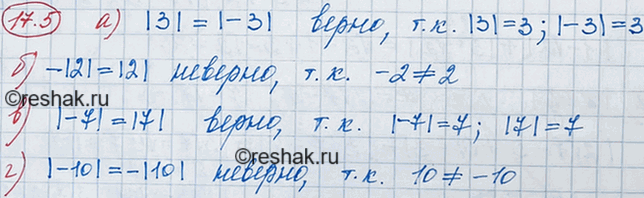 17.5 а) |3| = |-3| верно, т.к. |3| = 3; |-3| = 3
б) -|2| = |2| неверно, т.к. -2 ≠ 2
©reshak.ru
в) |-7| = |7| верно, т.к. |-7| = 7; |7| = 7
©reshak.ru
г) |-10| = -|10| неверно, т.к. 10 ≠ -10